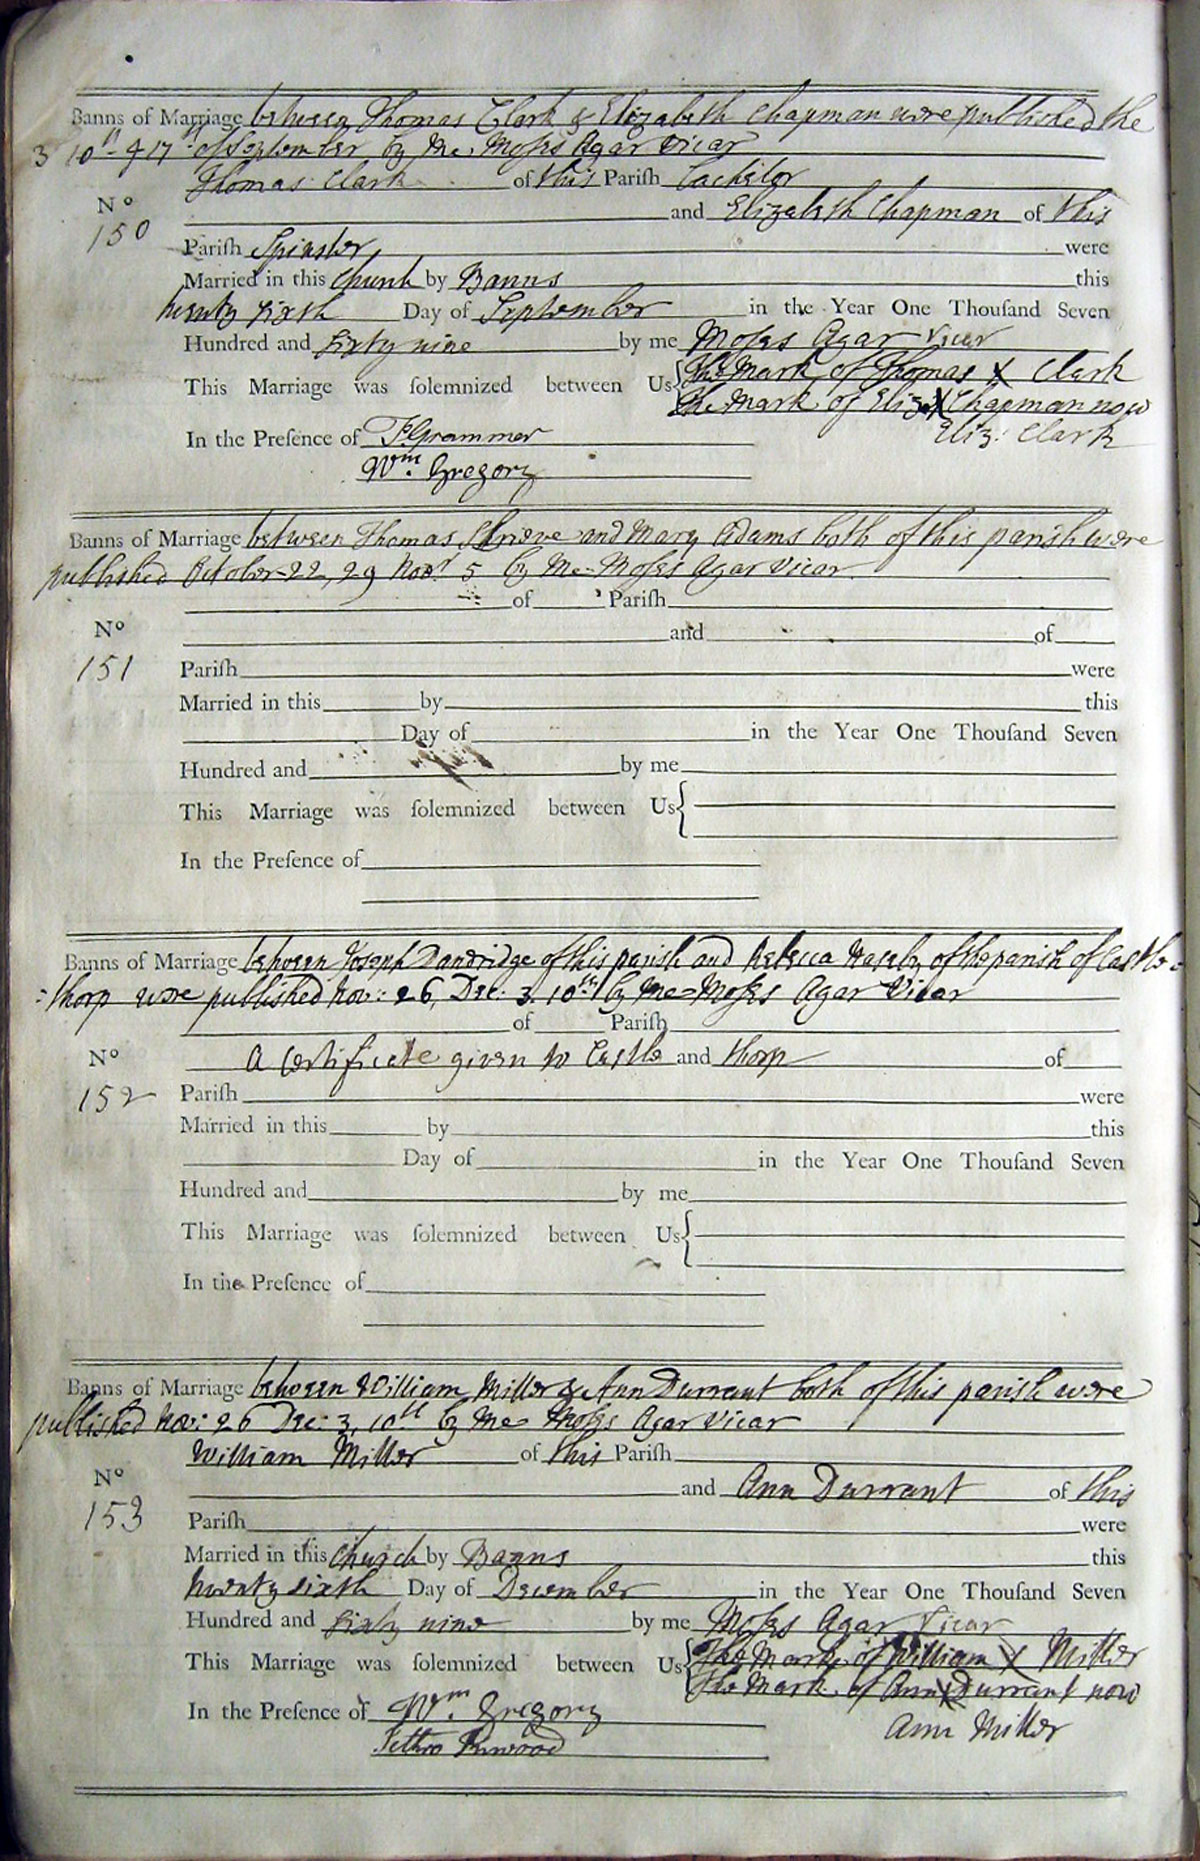 Banns of Marriage between Thomas Clark & Elizabeth Chapman were published the
3 10th & 17th of September by Me Moses Agar Vicar
Thomas Clark of this Parish Bachelor
No and Elizabeth Chapman of this
150
Pariſh Spinster were
Married in this Church by Banns this
twenty sixth Day of September in the Year One Thouſand Seven
Hundred and sixty nine by me Moses Agar Vicar
This Marriage was ſolemnized between Us { The Mark of Thomas X Clark
The Mark of Eliz: X Chapman now
In the Preſence of F Grammer Eliz: Clark
Wm. Gregory
Banns of Marriage between Thomas Shrieve and Mary Adams both of this parish were
published October 22, 29 Novr 5 by Me Moses Agar Vicar
of Pariſh
No and of
151 Pariſh were
Married in this by this
Day of in the Year One Thouſand Seven
Hundred and by me
This Marriage was ſolemnized between Us {
In the Preſence of
Banns of Marriage between Joseph Dandridge of this parish and Rebecca of the parish of Castle =
= thorp were published Nov: 26, Dec: 3, 10th by Me Moses Agar Vicar
of Pariſh
No A Certificate given to Castle and thorp of
152 Pariſh were
Married in this by this
Day of in the Year One Thouſand Seven
Hundred and by me
This Marriage was ſolemnized between Us {
In the Preſence of
Banns of Marriage between William Miller & Ann Durrant both of this parish were
published Nov: 26 Dec: 3, 10th by Me Moses Agar Vicar
William Miller of this Pariſh
No and Ann Durrant of this
153 Pariſh were
Married in this Church by Banns this
twenty sixth Day of December in the Year One Thouſand Seven
Hundred and sixty nine by me Moses Agar Vicar
This Marriage was ſolemnized between Us { The Mark of William X Miller
The Mark of Ann X Durrant now
In the Preſence of Wm. Gregory Ann Miller
Jethro